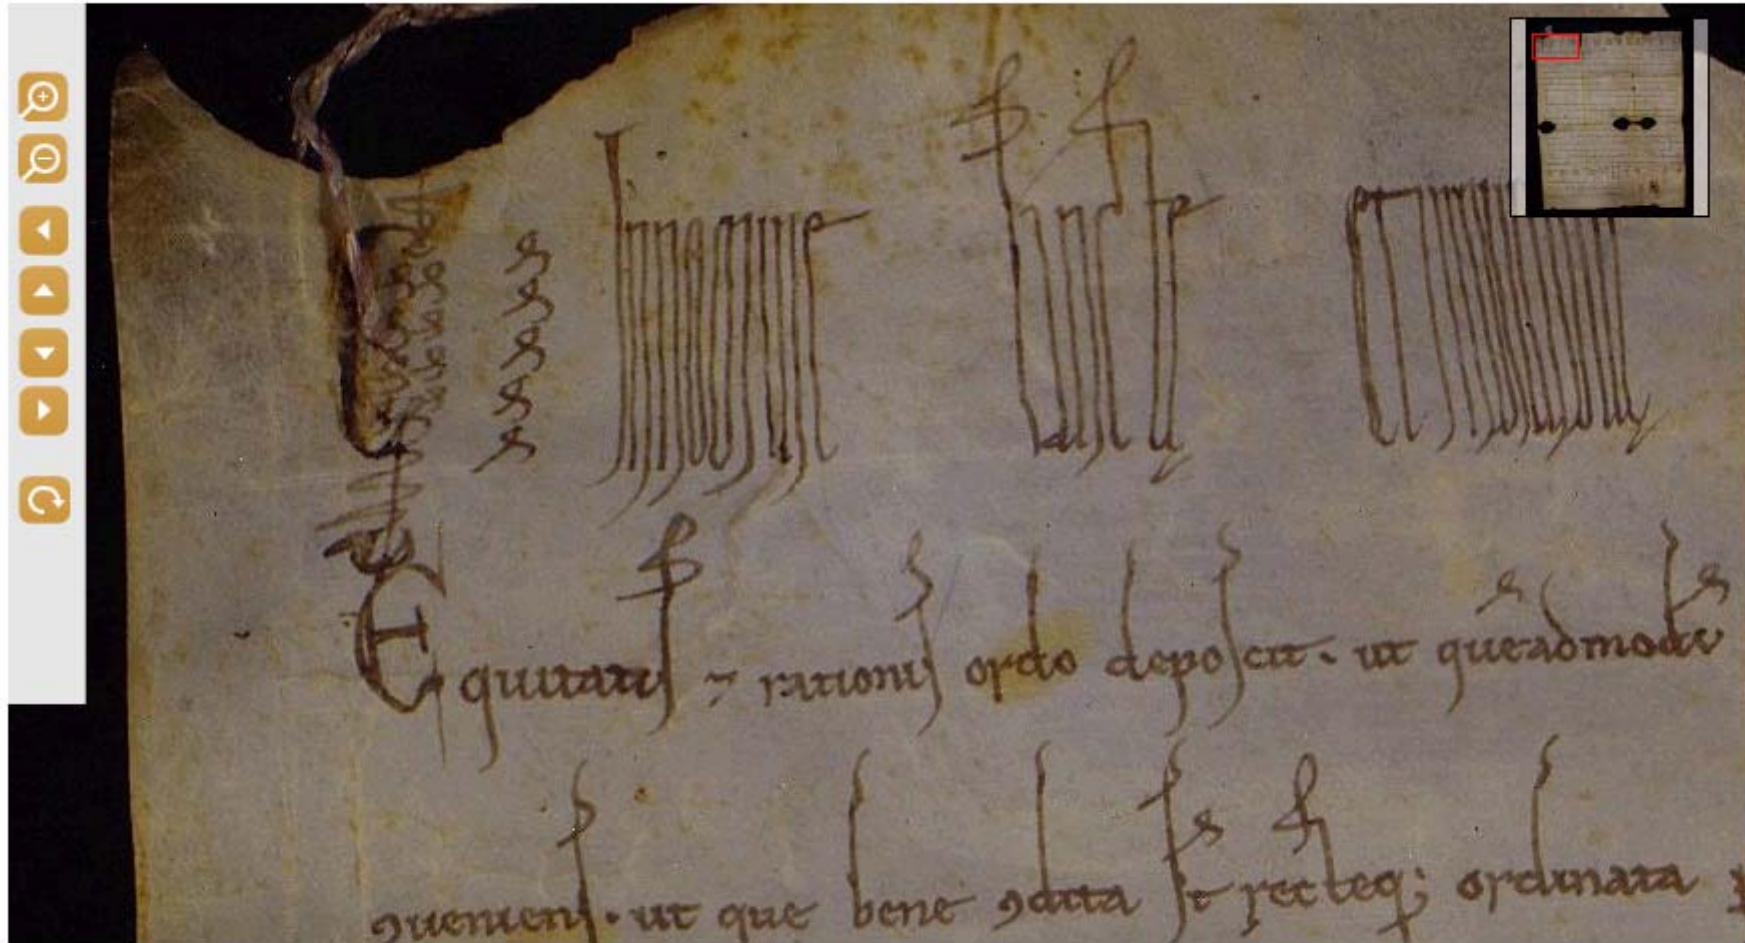 In nomine sancte et individue
Equitatis ⁊ rationis ordo deposcit. ut queadmodū
ꝯveniens. ut que bene ꝯdita st̄ recteq; ordinata